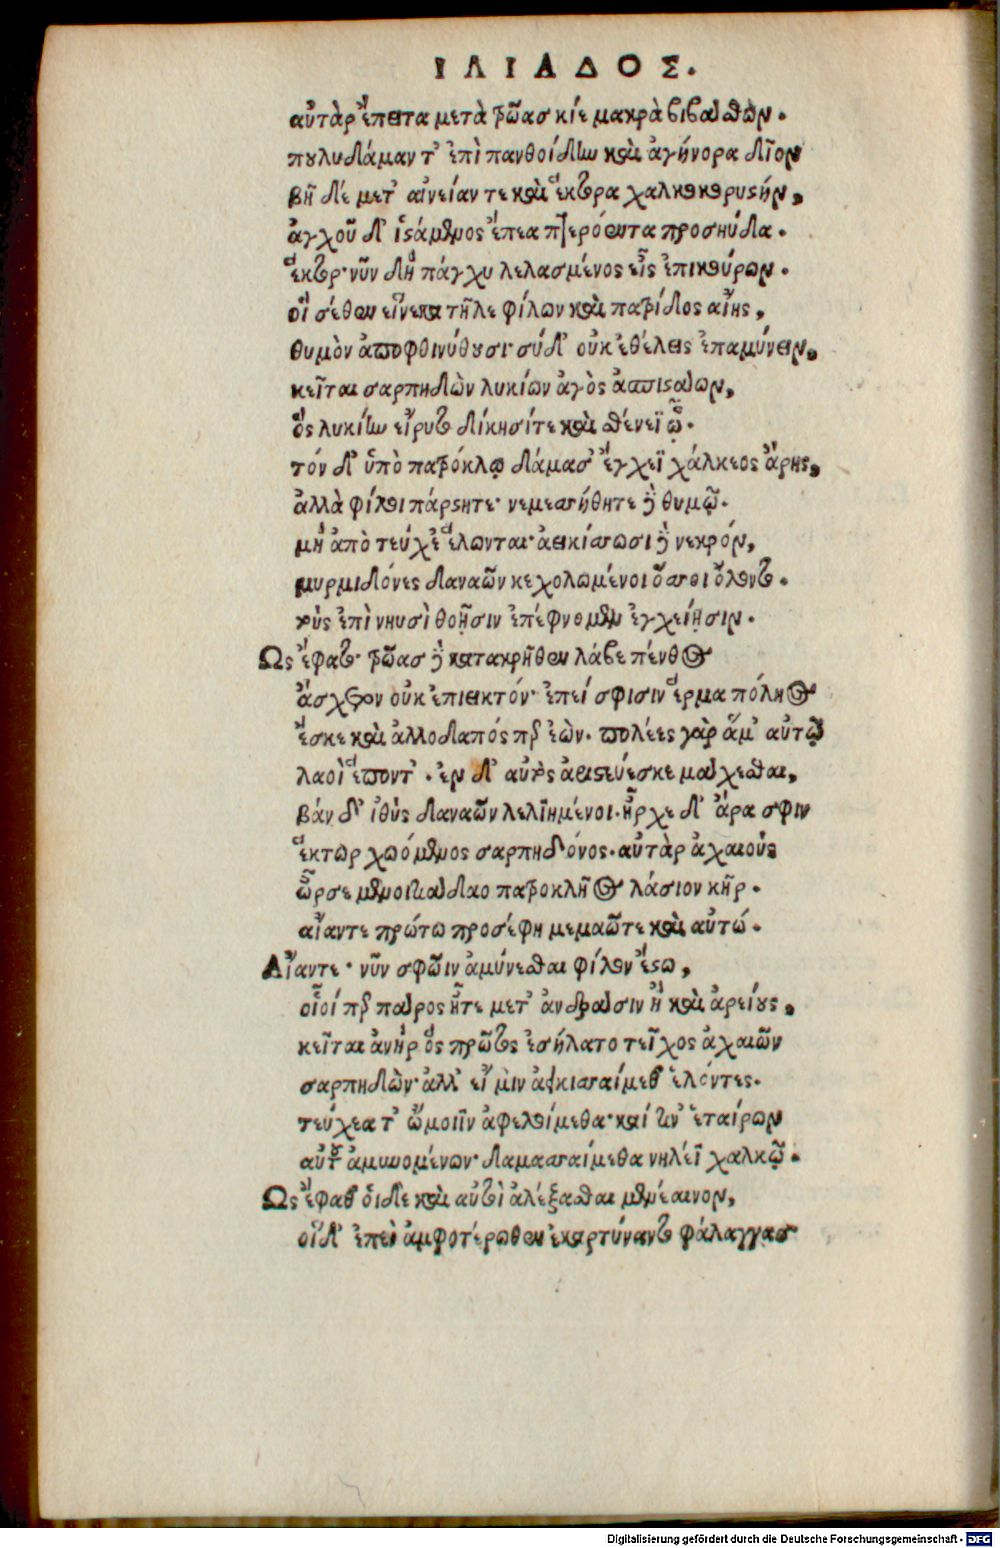 ΙΛΙΑΔΟΣ.
αὐτὰρ ἔπειτα μετὰ τρῶας κίε μακρὰ βιβάσθων.
πουλυδάμαντ' ἐπὶ πανθοίδην καὶ ἀγήνορα δῖον
βῆ δὲ μετ' αἰνείαν τε καὶ ἕκτορα χαλκοκορυστὴν,
ἀγχοῦ δ' ἱστάμενος ἔπεα πτερόεντα προσηύδα.
ἕκτορ· νῦν δὴ πάγχυ λελασμένος εἶς ἐπικούρων.
οἳ σέθεν εἵνεκα τῆλε φίλων καὶ πατρίδος αἴης,
θυμὸν ἀποφθινύθουσι· σὺ δ' οὐκ ἐθέλεις ἐπαμύνειν,
κεῖται σαρπηδὼν λυκίων ἀγὸς ἀσπιστάων,
ὃς λυκίην εἴρυτο δίκησί τε καὶ σθένεϊ ᾧ.
τὸν δ' ὑπὸ πατρόκλῳ δάμασ' ἔγχεϊ χάλκεος ἄρης,
ἀλλὰ φίλοι πάρστητε· νεμεσσήθητε δὲ θυμῷ.
μὴ ἀπὸ τεύχε' ἕλωνται· ἀεικίσσωσι δὲ νεκρὸν,
μυρμιδόνες δαναῶν κεχολωμένοι ὅσσοι ὄλοντο.
τοὺς ἐπὶ νηυσὶ θοῇσιν ἐπέφνομεν ἐγχείῃσιν.
Ως ἔφατο· τρῶας δὲ κατακρῆθεν λάβε πένθος
ἄσχετον οὐκ ἐπιεικτόν· ἐπεί σφισιν ἕρμα πόληος
ἔσκε καὶ ἀλλοδαπός περ ἐών. πολέες γὰρ ἅμ' αὐτῷ
λαοὶ ἕποντ'. ἐν δ' αὐτὸς ἀριστεύεσκε μάχεσθαι,
βὰν δ' ἰθὺς δαναῶν λελιημένοι. ἦρχε δ' ἄρα σφιν
ἕκτωρ χωόμενος σαρπηδόνος. αὐτὰρ ἀχαιοὺς
ὦρσε μενοιτιάδαο πατροκλῆος λάσιον κῆρ.
αἴαντε πρώτω προσέφη μεμαῶτε καὶ αὐτώ.
Αἴαντε· νῦν σφῶϊν ἀμύνεσθαι φίλον ἔστω,
οἷοί περ πάρος ἦτε μετ' ἀνδράσιν ἢ καὶ ἀρείους,
κεῖται ἀνὴρ ὃς πρῶτος ἐσήλατο τεῖχος ἀχαιῶν
σαρπηδὼν· ἀλλ' εἴ μιν ἀεικισσαίμεθ' ἑλόντες.
τεύχεα τ' ὤμοιϊν ἀφελοίμεθα· καί τιν' ἑταίρων
αὐτοῦ ἀμυνομένων· δαμασσαίμεθα νηλέϊ χαλκῷ.
Ως ἔφαθ' οἱ δὲ καὶ αὐτοὶ ἀλέξασθαι μενέαινον,
οἳ δ' ἐπεὶ ἀμφοτέρωθεν ἐκαρτύναντο φάλαγγας
Digitalisierung gefördert durch die Deutsche Forschungsgemeinschaft - DFG